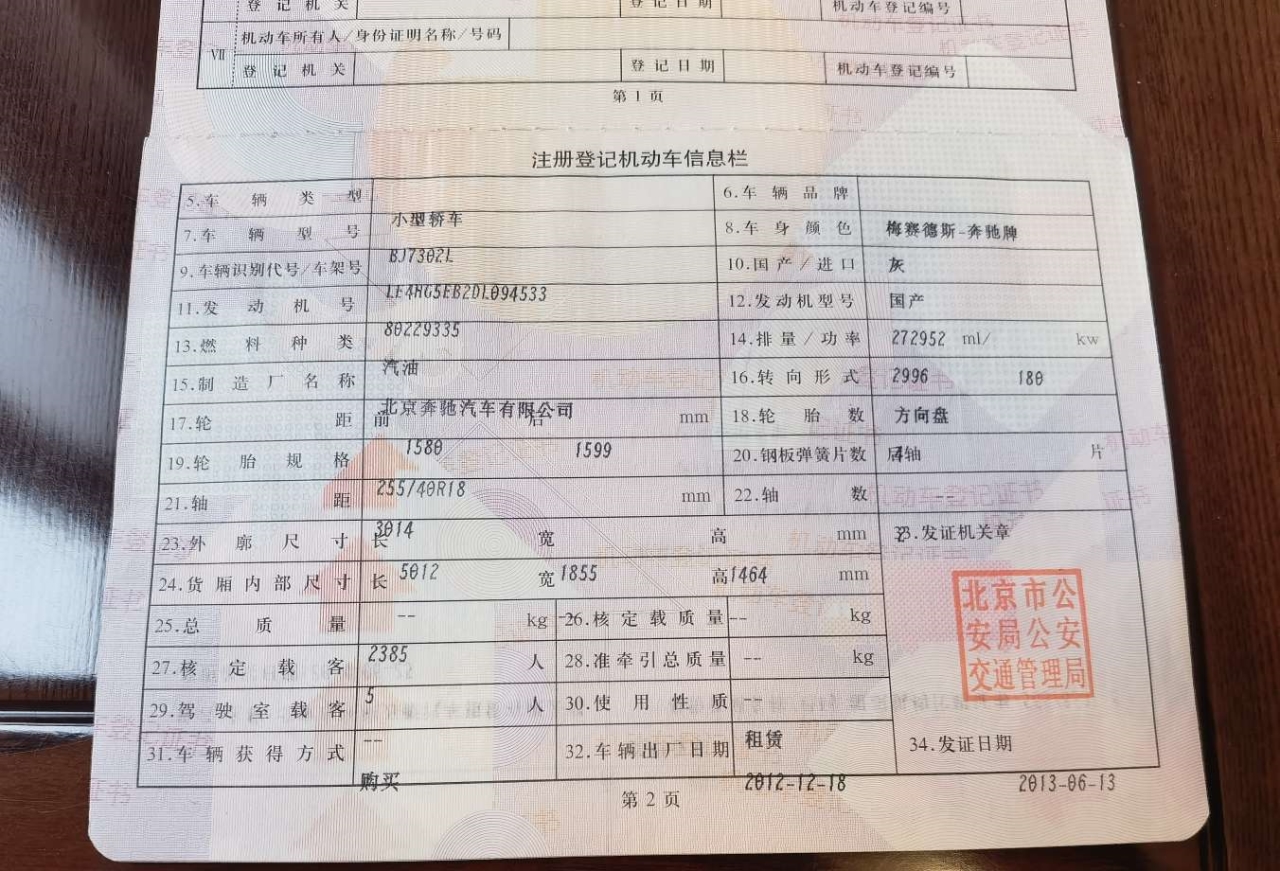 登记机关 登记日期 机动车登记编号
VII 机动车所有人/身份证明名称/号码
登记机关 登记日期 机动车登记编号
第1页
注册登记机动车信息栏
5.车辆类型 小型轿车 6.车辆品牌 梅赛德斯-奔驰牌
7.车辆型号 BJ7302L 8.车身颜色 灰
9.车辆识别代号/车架号 LE4HG5EB2DL094533 10.国产/进口 国产
11.发动机号 80229335 12.发动机型号 272952
13.燃料种类 汽油 14.排量/功率 2996 ml/ 180 kw
15.制造厂名称 北京奔驰汽车有限公司 16.转向形式 方向盘
17.轮距 前 1580 后 1599 mm 18.轮胎数 4
19.轮胎规格 255/40R18 20.钢板弹簧片数 后轴 -- 片
21.轴距 3014 mm 22.轴数 2
23.外廓尺寸 长 5012 宽 1855 高 1464 mm 33.发证机关章
24.货厢内部尺寸 长 -- 宽 -- 高 -- mm
北京市公安局公安交通管理局
25.总质量 2385 kg 26.核定载质量 -- kg
27.核定载客 5 人 28.准牵引总质量 -- kg
29.驾驶室载客 -- 人 30.使用性质 租赁
31.车辆获得方式 购买 32.车辆出厂日期 2012-12-18 34.发证日期 2013-06-13
第2页